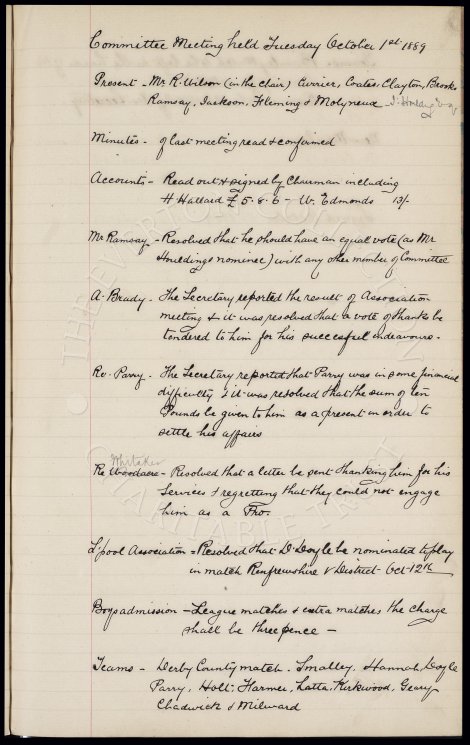 Committee Meeting held Tuesday October 1st 1889
Present - Mr. R. Wilson (in the chair) Currier, Coates, Clayton, Brooks
Ramsay, Jackson, Fleming & Molyneux
Minutes - of last meeting read & confirmed
Accounts - Read out & signed by Chairman including
H Hallard £5.8.6 - W. Edmonds 13/-
Mr Ramsay - Resolved that he should have an equal vote (as Mr
Houldings nominee) with any other member of Committee
A. Brady - The Secretary reported the result of Association
meeting & it was resolved that a vote of thanks be
tendered to him for his succesful endeavours.
Re-Parry - The Secretary reported that Parry was in some financial
difficulty & it was resolved that the sum of ten
Pounds be given to him as a present in order to
settle his affairs
Whitaker
Re Woodacre - Resolved that a letter be sent thanking him for his
Services & regretting that they could not engage
him as a Pro.
L'pool Association - Resolved that D. Doyle be nominated to play
in match Renfrewshire v District - Oct - 12th
Boys admission - League matches & extra matches the charge
shall be three pence -
Teams - Derby County match. Smalley, Hannah, Doyle
Parry, Holt, Farmer, Latta, Kirkwood, Geary
Chadwick & Milward
THE EVERTON COLLECTION
CHARITABLE TRUST